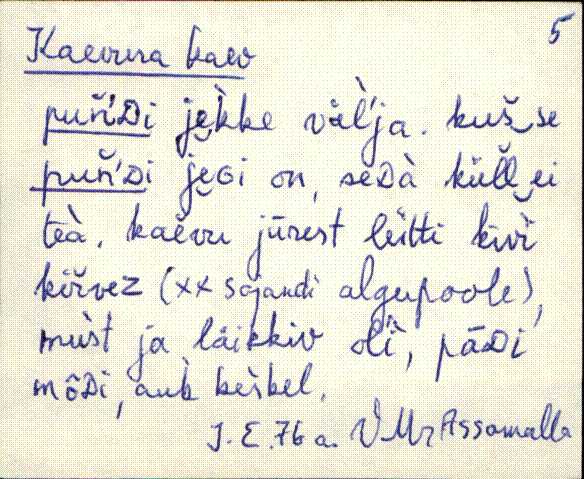 5
Kaevura kaev
puňďDi jekke väl'ja. kuš se
puň'Di jeGi on, seDà küll ei
teà. kaevu jūrest leitti kivi
kirvez (XX sajandi algupoole),
must ja läikkiv oli, pāDi
mōDi, auk keskel.
J. E. 76 a. VMr Assamalla